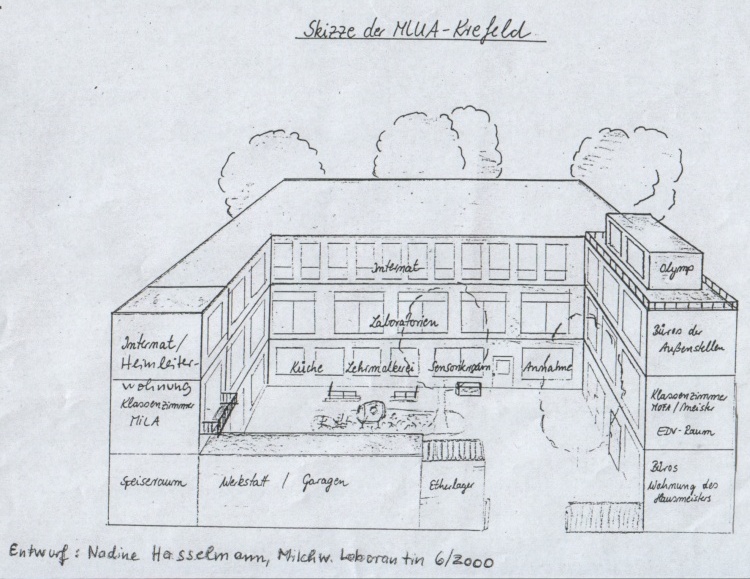 Skizze der MLUA-Krefeld
Olymp
Internat
Laboratorien
Küche Lehrmolkerei Sensorikraum Annahme
Internat/
Heimleiter-
wohnung
Klassenzimmer
MiLA
Büros der
Außenstellen
Klassenzimmer
MOFA/Meister
EDV-Raum
Speiseraum
Werkstatt / Garagen
Etherlager
Büros
Wohnung des
Hausmeisters
Entwurf: Nadine Hasselmann, Milchw. Laborantin 6/2000